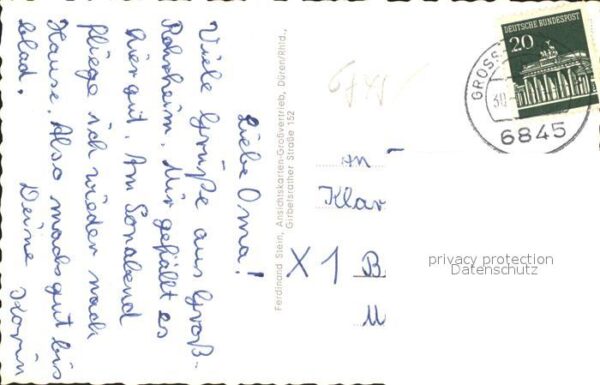 Liebe Oma!
Viele Grüße aus Groß-
Rohrheim. Mir gefällt es
hier gut. Am Sonabend
fliege ich wieder nach
Hause. Also machs gut bis
blad.
Deine
Ferdinand Stein, Ansichtskarten-Großvertrieb, Düren/Rhld.,
Girbelsrather Straße 152
DEUTSCHE BUNDESPOST
20
GROSS
30
6845
An
Klar
X 1 B
M
privacy protection
Datenschutz